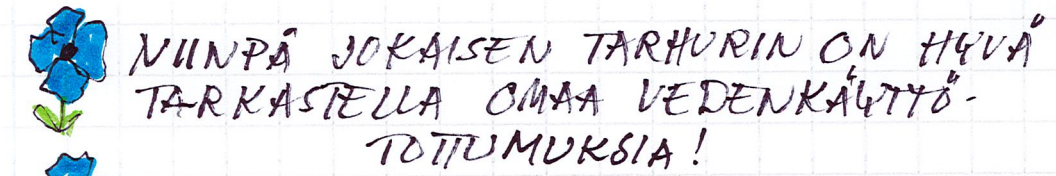 NIINPÄ JOKAISEN TARHURIN ON HYVÄ
TARKASTELLA OMAA VEDENKÄYTTÖ-
TOTTUMUKSIA!